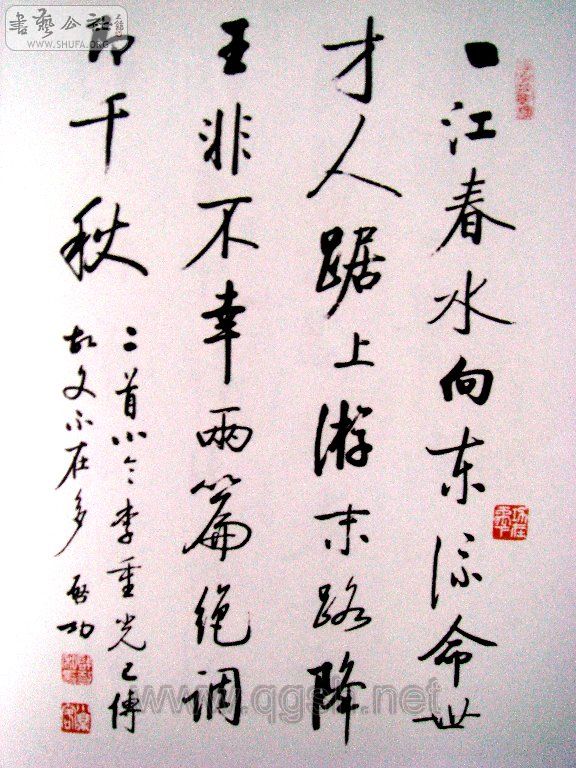 一江春水向东流命世
才人踞上游末路降
王非不幸两篇绝调
即千秋
二首小令李重光已传
故文不在多 启功
書藝公社
WWW.SHUFA.ORG
www.qgsf.net